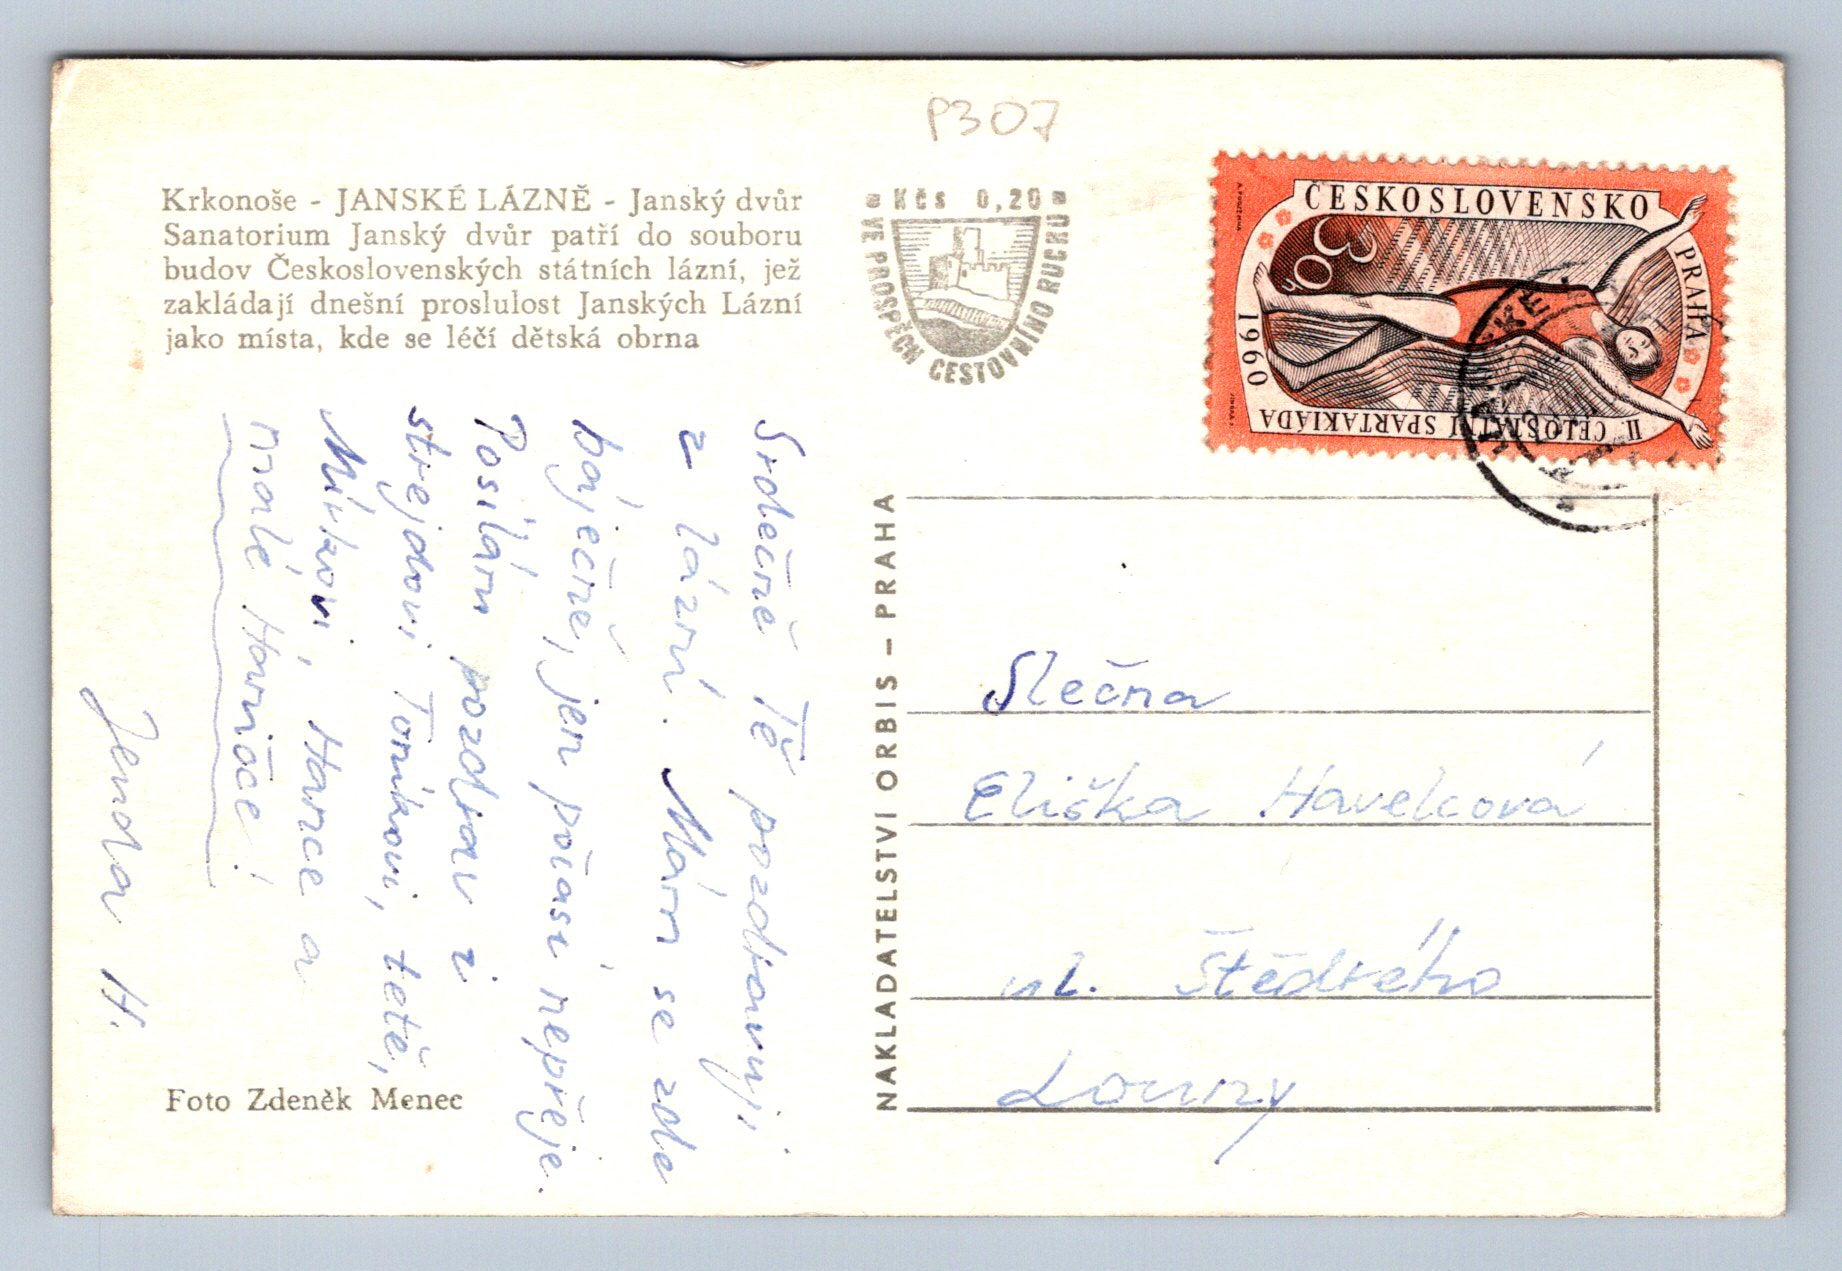 P307
Krkonoše - JANSKÉ LÁZNĚ - Janský dvůr
Sanatorium Janský dvůr patří do souboru
budov Československých státních lázní, jež
zakládají dnešní proslulost Janských Lázní
jako místa, kde se léčí dětská obrna
KČS 0,20
VE PROSPĚCH CESTOVNÍHO RUCHU
ČESKOSLOVENSKO
30h
PRAHA
1960
II. CELOSTÁTNÍ SPARTAKIÁDA
Srdečně Tě pozdravuji
z lázní. Mám se zde
báječně, jen počasí nepřeje.
Posílám pozdrav i
strejdovi Toníkovi, tetě,
Mírkovi, Hance a
malé Haničce!
Jenda H.
Foto Zdeněk Menec
NAKLADATELSTVÍ ORBIS – PRAHA
Slečna
Eliška Havelcová
ul. Štědrého
Louny